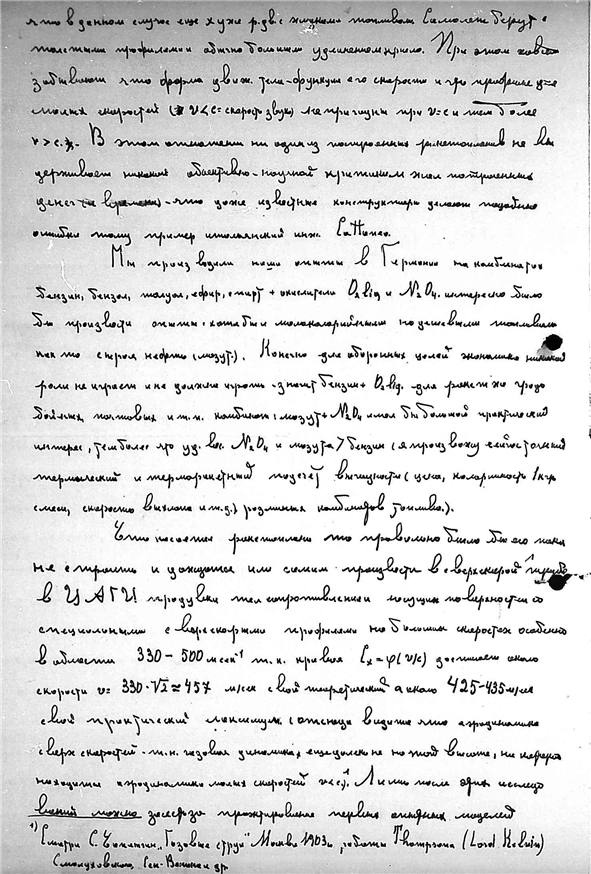 что в данном случае еще хуже р.дв. с жидким топливом Самолет берут с
толстыми профилями и обычно большим удлинением крыло. При этом
забывают что форма движ. тела - функция его скорости и что профиля для
малых скоростей (v < c = скорость звука) не пригодны при v=c и тем более
v > c. В этом отношении ни один из построенных ракетопланов не вы
держивает никакой объективно-научной критики жаль потраченных
денег (и времени) - что даже известные конструктора делают подобные
ошибки тому пример итальянский инж. Cattaneo.
Мы производили наши опыты в Германии на комбинатов
бензин, бензол, толуол, ефир, спирт + окислители O₂ liq и N₂O₄. интересно было
бы произвести опыты хотя бы и малокалорийным но дешевым топливом
как то сырая нефть (мазут). Конечно для оборонных целей экономика никакой
роли не играет и не должна играть - значит бензин + O₂ liq. для ракет же градо
бойных почтовых и т.п. комбинат: мазут + N₂O₄ имел бы большой практический
интерес, тем более что уд. вес N₂O₄ и мазута > бензин (я произвожу сейчас точный
термический и термоpакетный подсчет выгодности (цена, калорийность 1 кгр
смеси, скорость выхлопа и т.д.) различных комбинатов топлива).
Что касается ракетоплана то правильно было бы его пока
не строить и дождаться или самим произвести в сверхскорой трубе
в ЦАГИ продувки тел сопротивления и несущих поверхностей со
специальными сверхскорыми профилями на больших скоростях особенно
в области 330 – 500 м сек⁻¹ т.к. кривая Cₓ = φ(v/c) достигает около
скорости v = 330·√2 ≅ 457 м/сек свой теоретический а около 425-435 м/сек
свой практический максимум (отсюда видите что аэродинамика
сверх скоростей - т.н. газовая динамика еще далеко не на той высоте, на которой
находится аэродинамика малых скоростей v<c)¹⁾. Лишь после этих исследо
ваний можно за проектирование первых опытных моделей
¹⁾ Смотри С. Чаплыгин „Газовые струи" Москва 1903 г, работы Thompsona (Lord Kelvin)
Смолуховского, Сен-Венана и др.